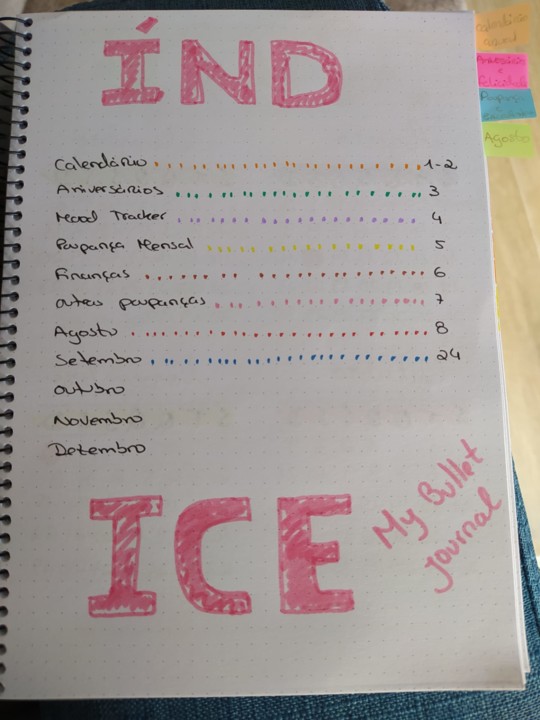 ÍND
Calendário 1-2
Aniversários 3
Mood Tracker 4
Poupança Mensal 5
Finanças 6
outras poupanças 7
Agosto 8
Setembro 24
outubro
Novembro
Dezembro
ICE
My Bullet
journal
Calendário
Agosto